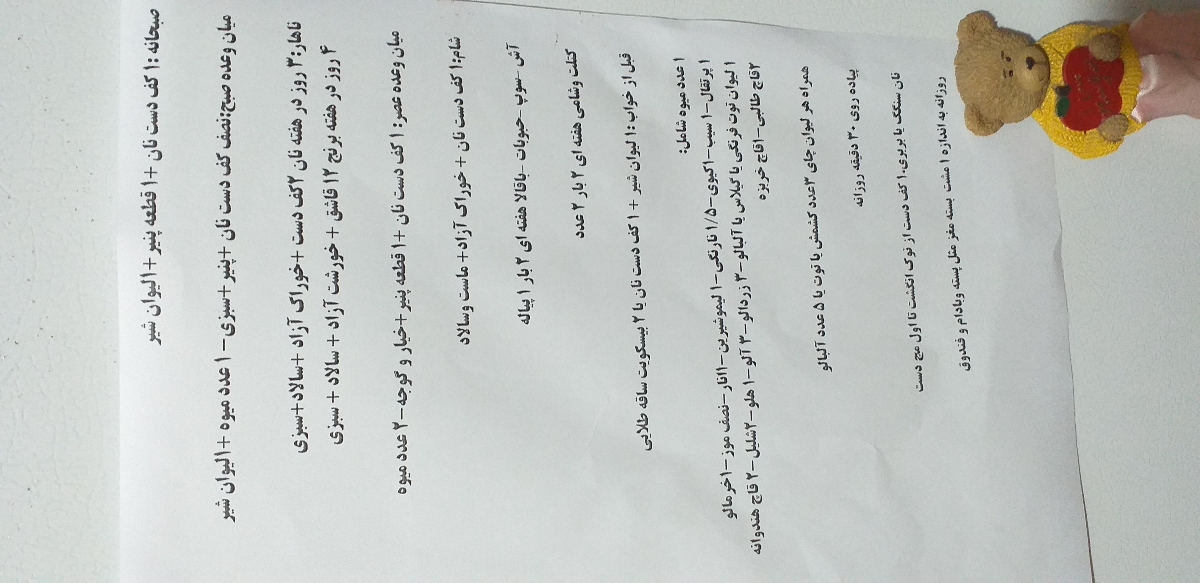 صبحانه :۱ کف دست نان +۱ قطعه پنیر +۱لیوان شیر
میان وعده صبح:نصف کف دست نان +پنیر +سبزی- ۱ عدد میوه +۱لیوان شیر
ناهار:۳ روز در هفته نان ۲کف دست +خوراک آزاد +سالاد+سبزی
۴ روز در هفته برنج ۱۲ قاشق + خورشت آزاد + سالاد + سبزی
میان وعده عصر: ۱ کف دست نان +۱ قطعه پنیر +خیار و گوجه- ۲ عدد میوه
شام:۱ کف دست نان + خوراک آزاد+ ماست وسالاد
آش -سوپ -حبوبات -باقالا هفته ای ۲ بار ۱ پیاله
کتلت وشامی هفته ای ۲ بار ۲ عدد
قبل از خواب :۱ لیوان شیر + ۱ کف دست نان یا ۲ بیسکویت ساقه طلایی
۱ عدد میوه شامل:
۱ پرتقال-۱ سیب-۱کیوی-۱/۵ نارنگی-۱ لیموشیرین-۱انار-نصف موز-۱خرمالو
۱ لیوان توت فرنگی یا گیلاس یا آلبالو-۳ زردالو-۳ آلو-۱ هلو-۲شلیل-۲ قاچ هندوانه
۲قاچ طالبی-۱قاچ خربزه
همراه هر لیوان چای ۳عدد کشمش یا توت یا ۵ عدد آلبالو
پیاده روی ۳۰ دقیقه روزانه
نان سنگک یا بربری.۱ کف دست از نوک انگشت تا اول مچ دست
روزانه به اندازه ۱ مشت بسته مغز مثل پسته وبادام و فندوق